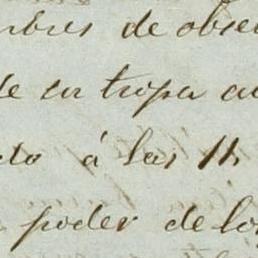 mbres de obser
de su tropa au
cto á las 11
poder de los